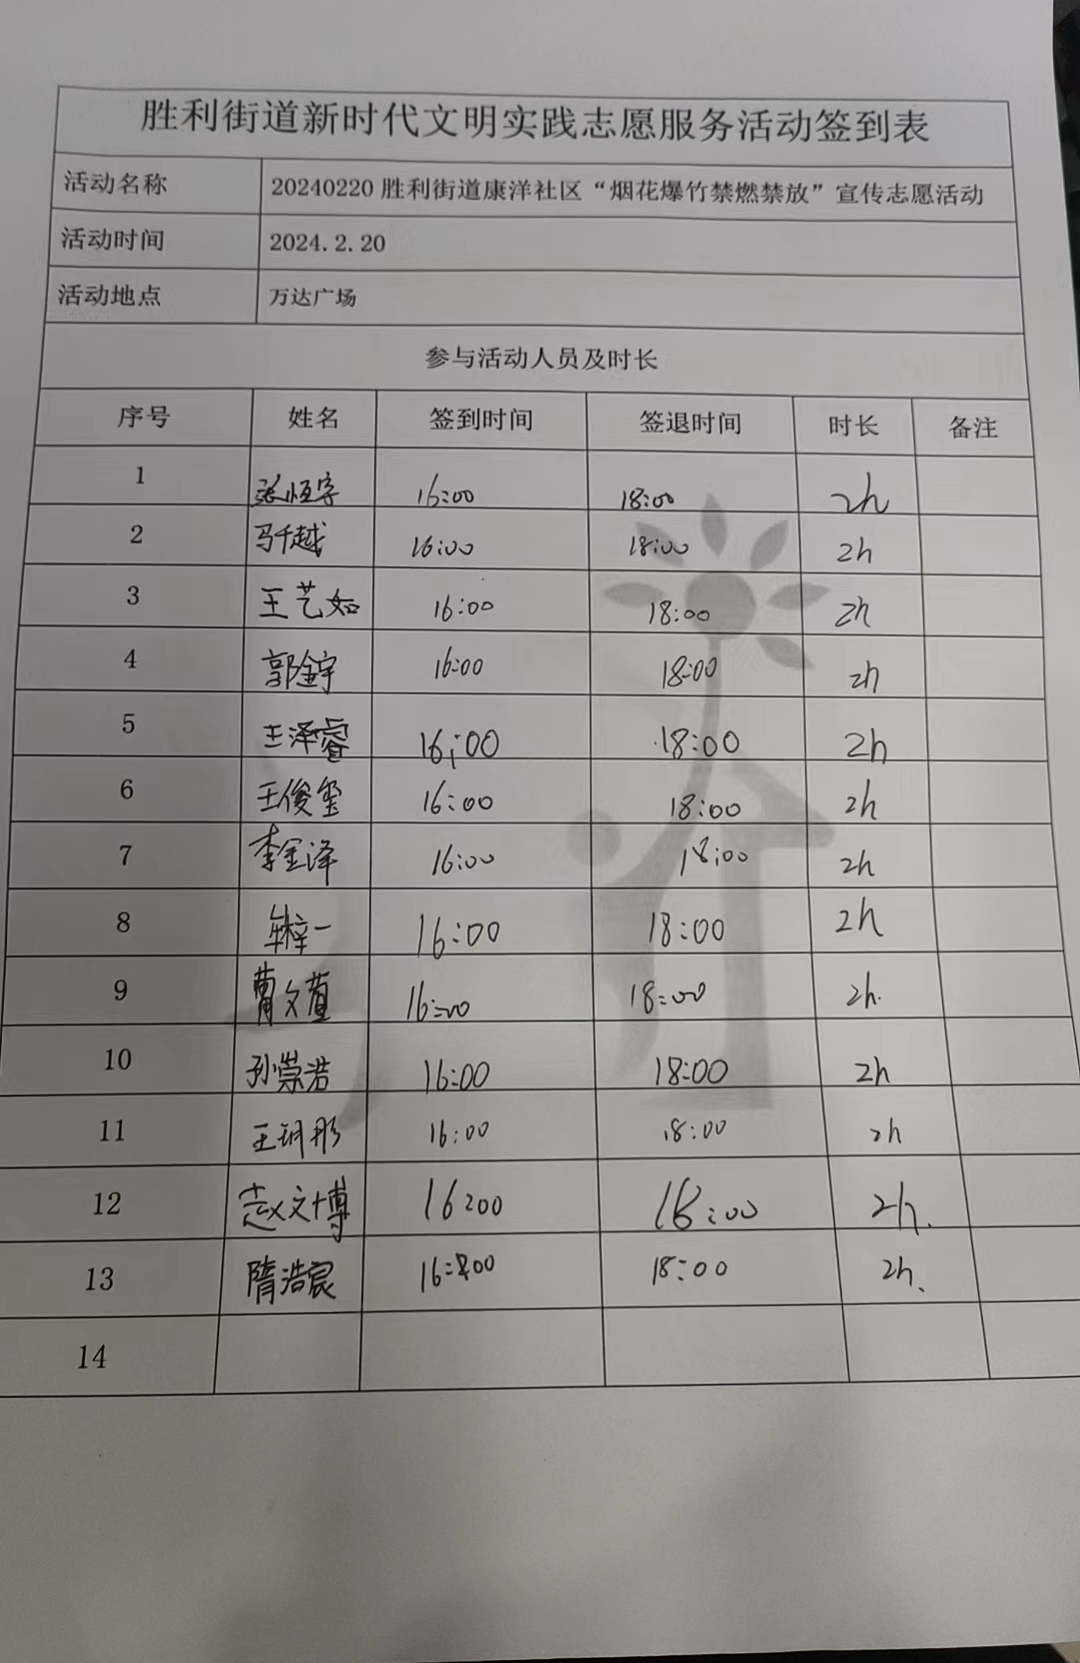 胜利街道新时代文明实践志愿服务活动签到表
活动名称 20240220 胜利街道康洋社区“烟花爆竹禁燃禁放”宣传志愿活动
活动时间 2024.2.20
活动地点 万达广场
参与活动人员及时长
序号 姓名 签到时间 签退时间 时长 备注
1 张恒宇 16:00 18:00 2h
2 马千越 16:00 18:00 2h
3 王艺如 16:00 18:00 2h
4 郭金宇 16:00 18:00 2h
5 王泽睿 16:00 18:00 2h
6 王俊玺 16:00 18:00 2h
7 李金泽 16:00 18:00 2h
8 16:00 18:00 2h
9 曹文萱 16:00 18:00 2h.
10 孙崇浩 16:00 18:00 2h
11 王玥彤 16:00 18:00 2h
12 赵文博 16:00 18:00 2h.
13 隋浩宸 16:00 18:00 2h.
14